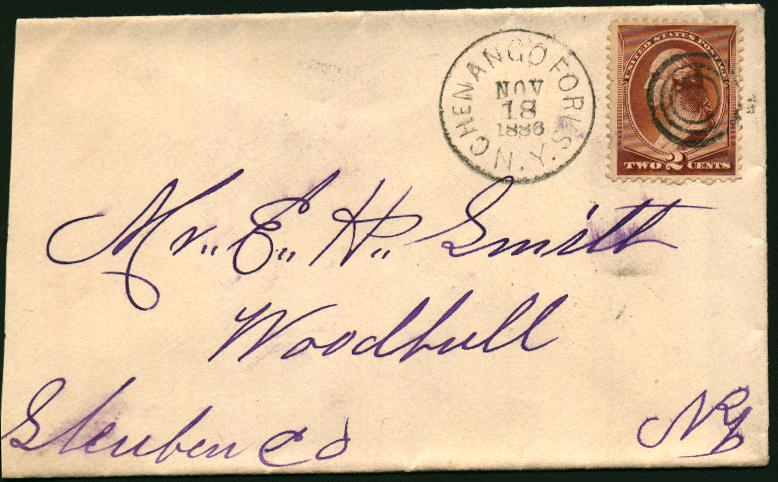 CHENANGO FORKS. N.Y.
NOV
18
1886
UNITED STATES POSTAGE
TWO 2 CENTS
Mr,, E,, H,, Smith
Woodhull
Steuben Co
NY